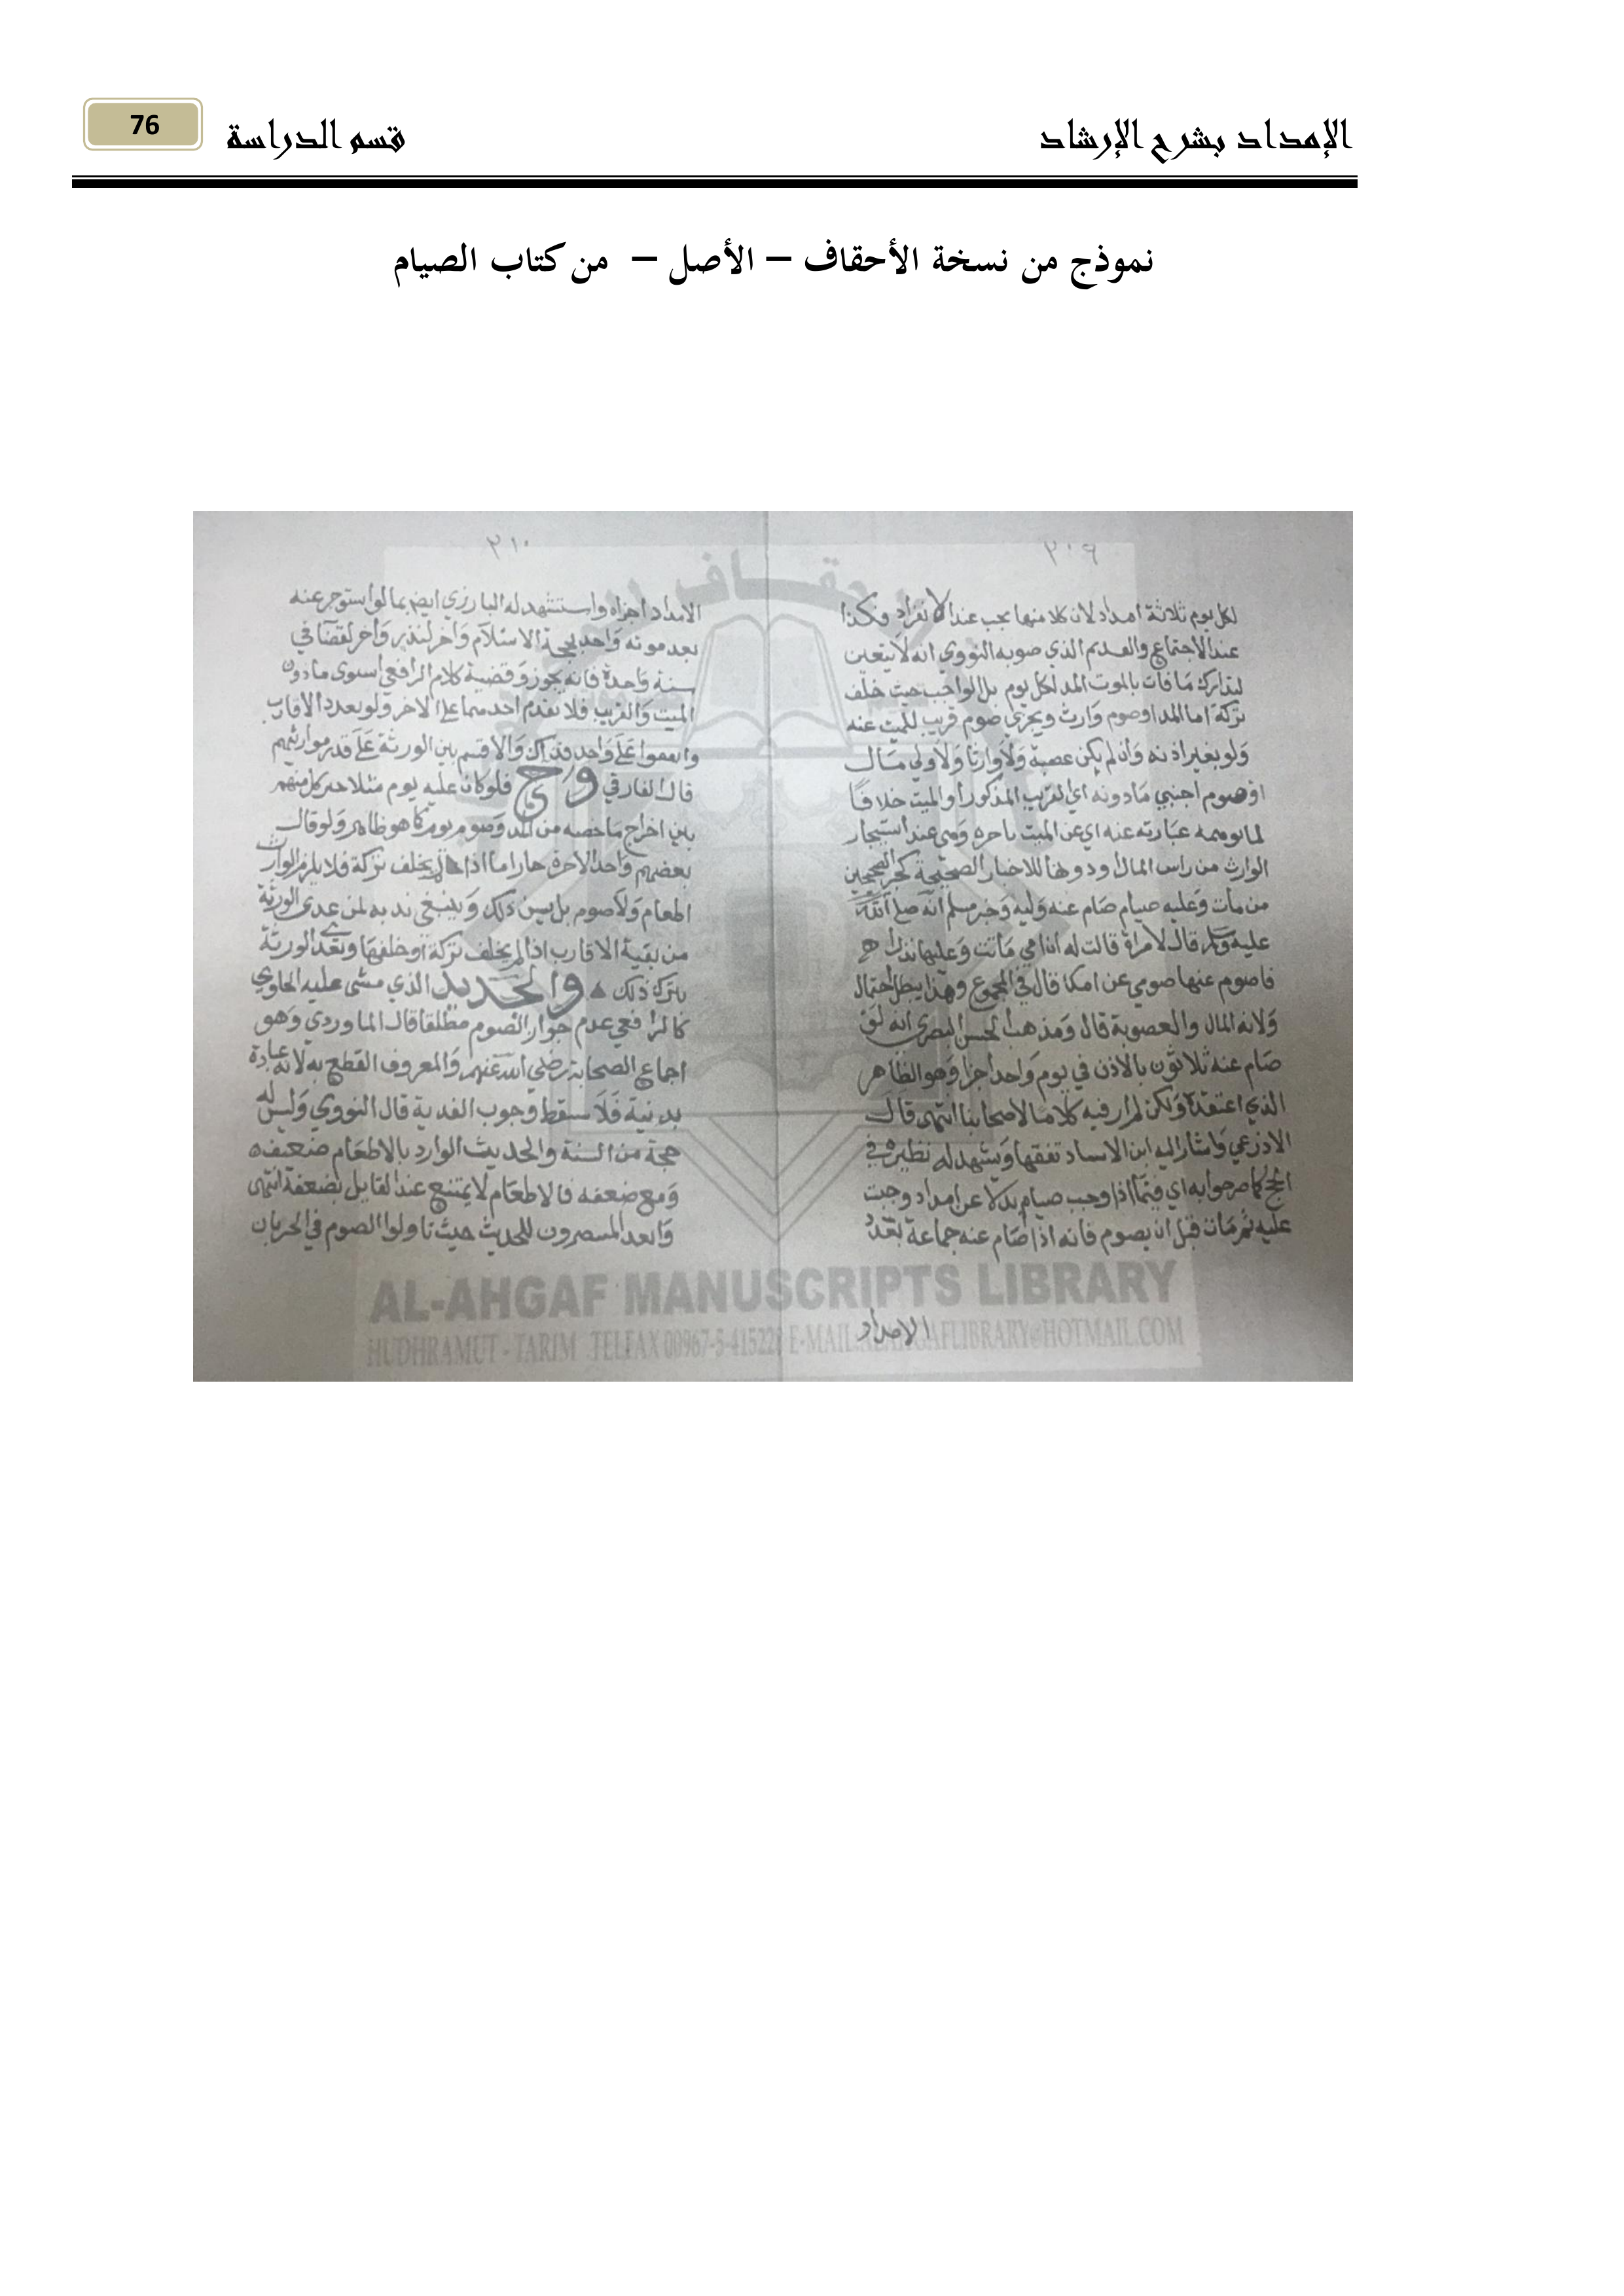 الإمداد بشرح الإرشاد
قسم الدراسة
76
نموذج من نسخة الأحقاف – الأصل – من كتاب الصيام
٢٠٩
لكل يوم ثلاثة امداد لان كلا منها يجب عند الانفراد فكذا
عند الاجتماع والقديم الذي صوبه النووي انه لا يتعين
لتدارك ما فات بالموت المد لكل يوم بل الواجب حيث خلف
تركة اما المد او صوم وارث ويجزي صوم قريب للميت عنه
ولو بغير اذنه وان لم يكن عصبة ولا وارثا ولا ولي مال
او صوم اجنبي ماذونه اي القريب المذكور او الميت خلافا
لما توهمه عبارته عنه اي عن الميت باجرة وهي عند استيجار
الوارث من راس المال ودونها للاخبار الصحيحة كخبر الصحيحين
من مات وعليه صيام صام عنه وليه وخبر مسلم انه صلى الله
عليه وسلم قال لامراة قالت له ان امي ماتت وعليها نذر
فاصوم عنها صومي عن امك قال في المجموع وهذا يبطل احتمال
ولاية المال والعصوبة قال ومذهب الحسن البصري انه لو
صام عنه ثلاثون بالاذن في يوم واحد اجزا وهو الظاهر
الذي اعتقده ولكن لم ار فيه كلاما لاصحابنا انتهى قال
الاذرعي واشار اليه ابن الاستاد تفقها ويشهد له نظيره في
الحج كما صرحوا به اي فيما اذا وجب صيام بدلا عن امداد وجبت
عليه ثم مات قبل ان يصوم فانه اذا صام عنه جماعة بعدد
الامداد
٢١٠
الامداد اجزاه واستشهد له البارزي ايضا بما لو استوجر عنه
بعد موته واحد بحجة الاسلام واخر لنذر واخر لقضا في
سنة واحدة فانه يجوز وقضية كلام الرافعي استوى ماذون
الميت والقريب فلا يقدم احدهما على الاخر ولو تعدد الاقارب
واتفقوا على واحد فذاك والا قسم بين الورثة على قدر مواريثهم
قال الفارقي وح فلو كان عليه يوم مثلا خير كل منهم
بين اخراج ما خصه من المد وصوم يوم كما هو ظاهر ولو قال
بعضهم واخذ الاجرة جاز اما اذا لم يخلف تركة فلا يلزم الوارث
اطعام ولا صوم بل يسن ذلك وينبغي ندبه لمن عدى الورثة
من بقية الاقارب اذا لم يخلف تركة او خلفها وتعدى الورثة
بترك ذلك والجديد الذي مشى عليه الحاوي
كالرافعي عدم جواز الصوم مطلقا قال الماوردي وهو
اجماع الصحابة رضي الله عنهم والمعروف القطع به لانه عبادة
بدنية فلا سقط وجوب الفدية قال النووي وليس له
حجة من السنة والحديث الوارد بالاطعام ضعيف
ومع ضعفه فالاطعام لا يمتنع عند القايل بضعفه انتهى
وابعد المنتصرون للحديث حيث تاولوا الصوم في الخبر بان
AL-AHGAF MANUSCRIPTS LIBRARY
HUDHRAMUT - TARIM TELFAX 00967-5-415228 E-MAIL:ALAHGAFLIBRARY@HOTMAIL.COM